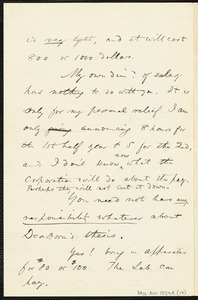 is very tight, and it will cost
800 or 1000 dollars.
My own dim? of salary
has nothing to do with you. It is
only for my personal relief. I am
only announcing 8 hours for
the 1st half year & 5 for the 2nd,
and I don't know now what the
Corporation will do about the pay.
Perhaps they will not cut it down.
You need not have any
responsibility whatever about
thesis.
Yes! bring on apparatus
for $0 or $100. The Lab. can
pay.